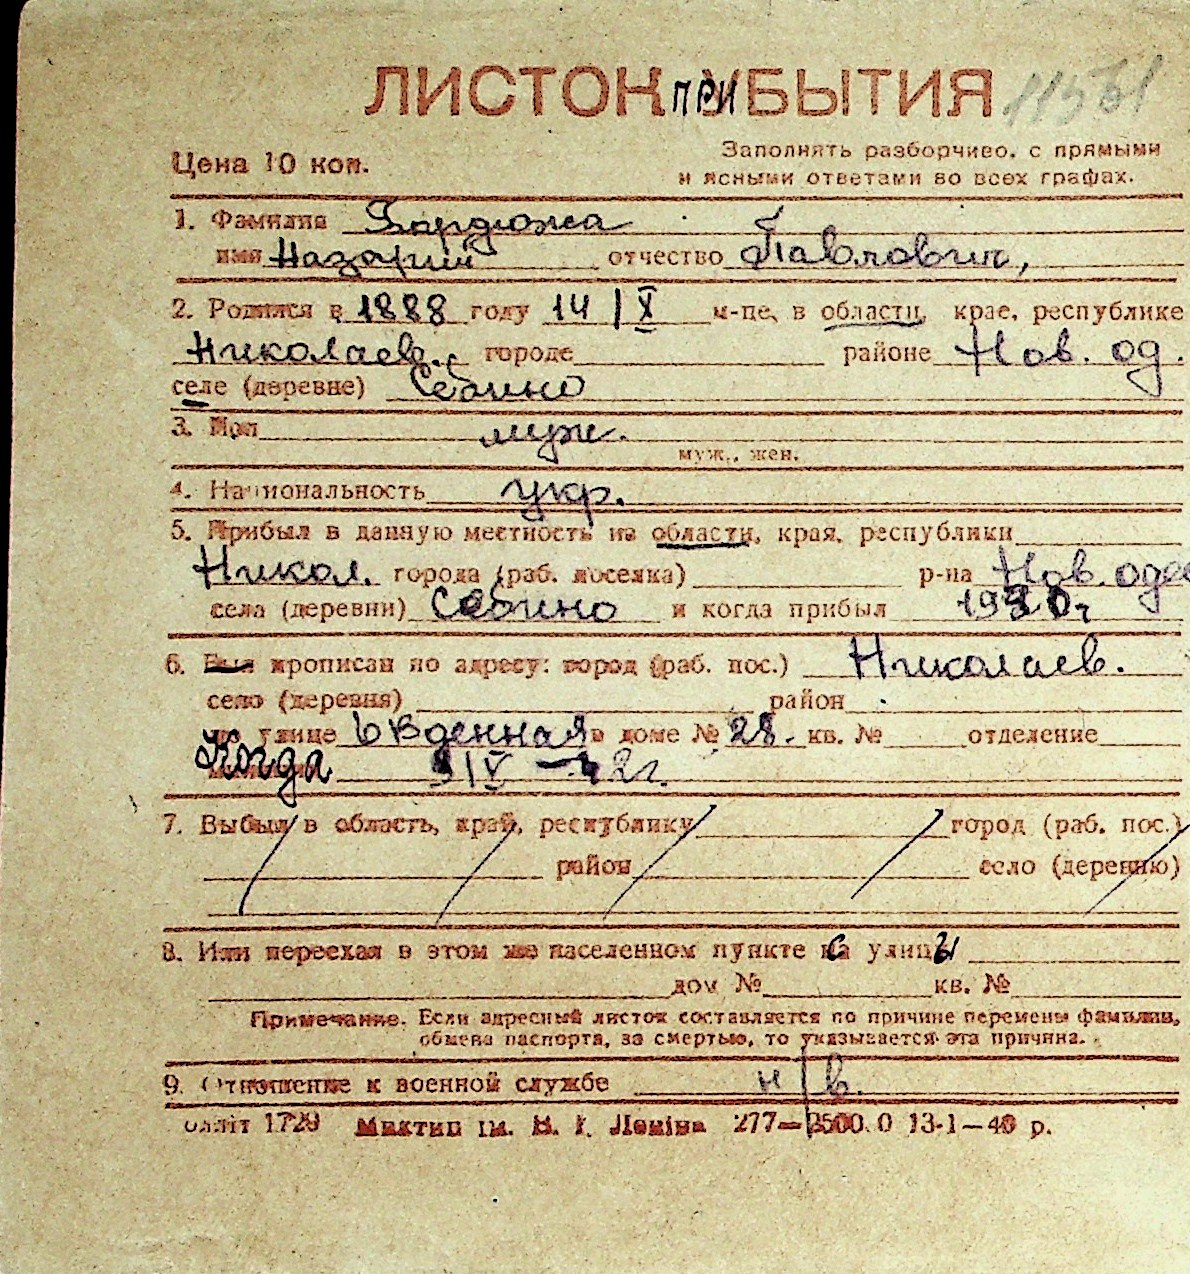 ЛИСТОК ПРИБЫТИЯ 11551
Цена 10 коп.
Заполнять разборчиво, с прямыми
и ясными ответами во всех графах.
1. Фамилия Бардюжа
имя Назарий отчество Павлович,
2. Родился в 1888 году 14/X м-це, в области, крае, республике
Николаев. городе районе Нов. од.
селе (деревне) Себино
3. Пол муж.
муж., жен.
4. Национальность укр.
5. Прибыл в данную местность из области, края, республики
Никол. города (раб. поселка) р-на Нов. одес
села (деревни) Себино и когда прибыл 1930г
6. Был прописан по адресу: город (раб. пос.) Николаев.
село (деревня) район
по улице в доме № 28. кв. № отделение
Когда 9/V - 42г.
7. Выбыл в область, край, республику город (раб. пос.)
район село (деревню)
8. Или переехал в этом же населенном пункте с улицы
дом № кв. №
Примечание. Если адресный листок составляется по причине перемены фамилии,
обмена паспорта, за смертью, то указывается эта причина.
9. Отношение к военной службе н/в.
Облліт 1729 Миктип ім. В. І. Леніна 277—2500.0 13-1—40 р.